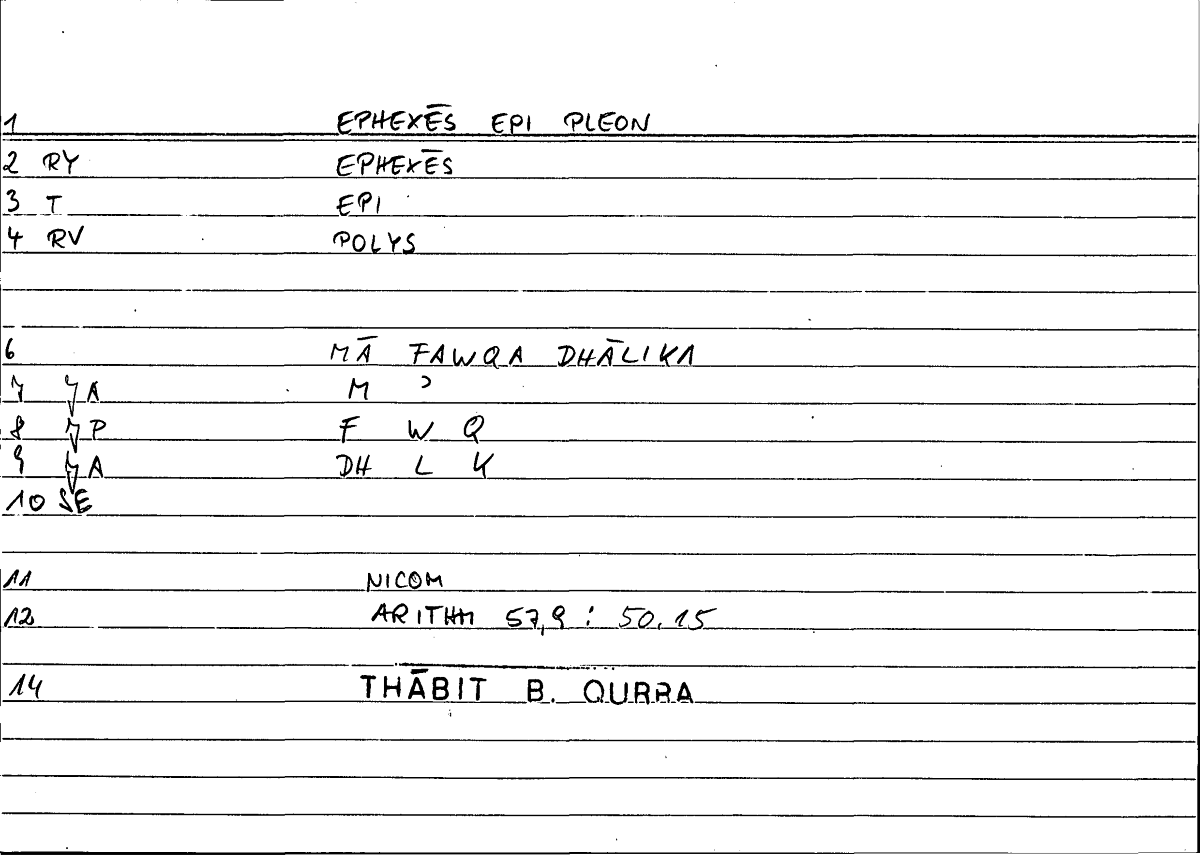 1 EPHEXĒS EPI PLEON
2 RY EPHEXĒS
3 T EPI
4 RV POLYS
6 MĀ FAWQA DHĀLIKA
7 A M ʾ
8 P F W Q
9 A DH L K
10 SE
11 NICOM
12 ARITHM 57,9 : 50.15
14 THĀBIT B. QURRA